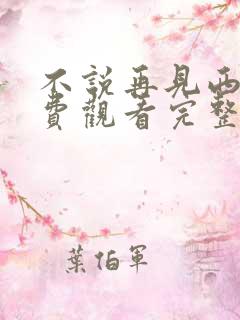 不說再見西
費觀看完整
葉伯軍